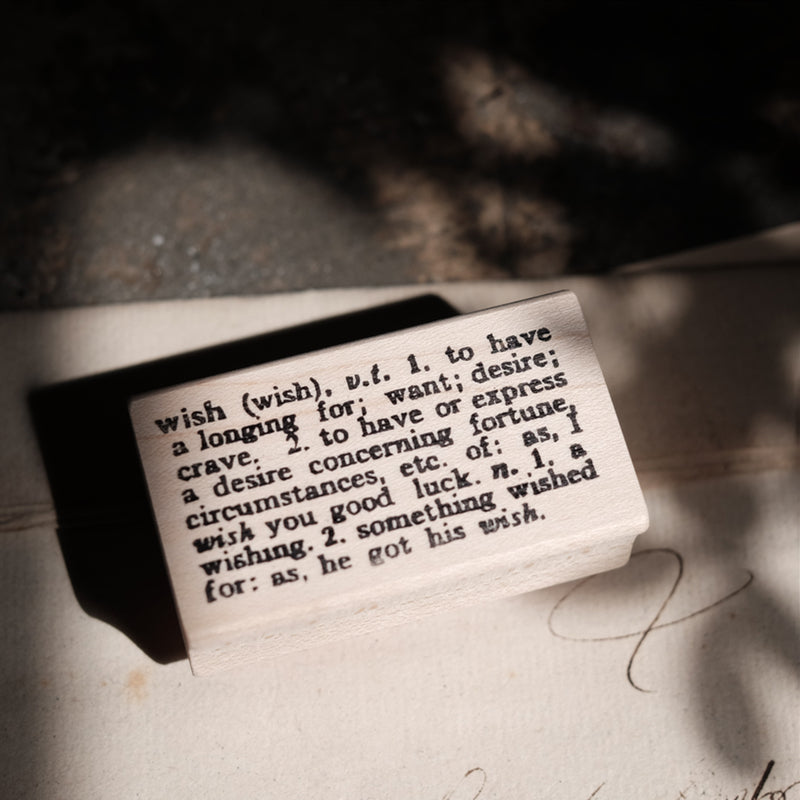 wish (wish), v.t. 1. to have
a longing for; want; desire;
crave. 2. to have or express
a desire concerning fortune,
circumstances, etc. of: as, I
wish you good luck. n. 1. a
wishing. 2. something wished
for: as, he got his wish.